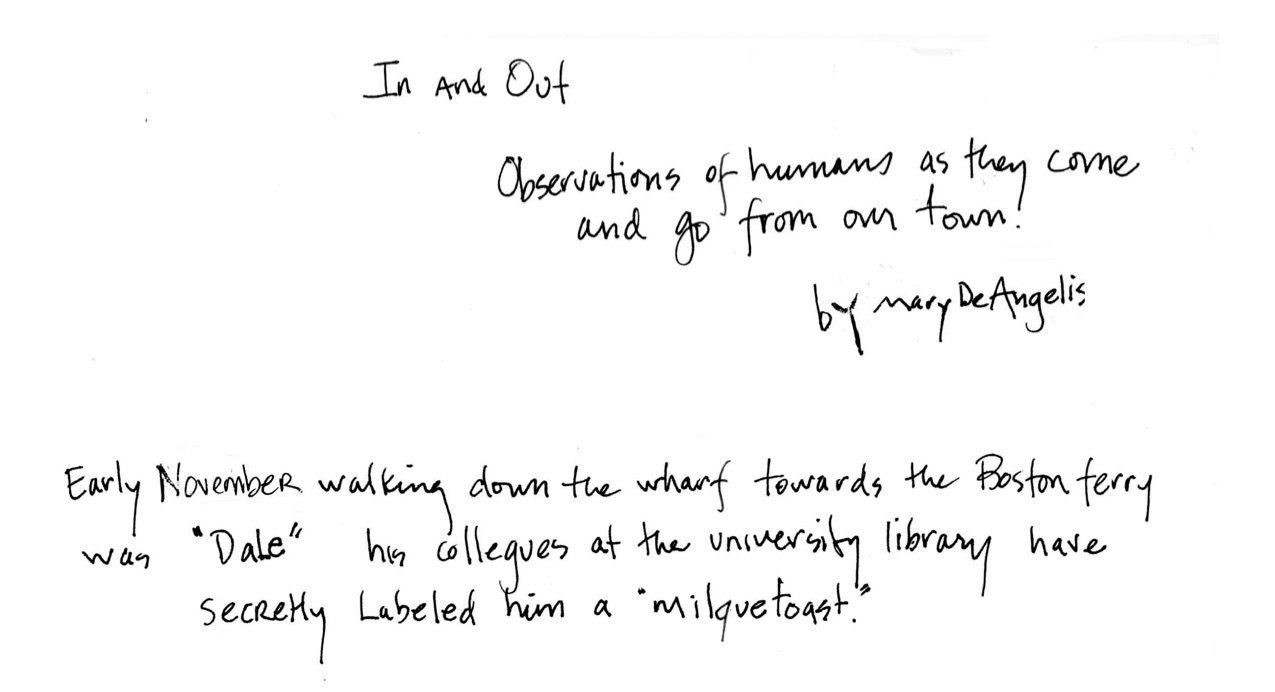 In And Out
Observations of humans as they come
and go from our town!
by mary DeAngelis
Early November walking down the wharf towards the Boston ferry
was "Dale" his collegues at the university library have
secretly Labeled him a "milquetoast."